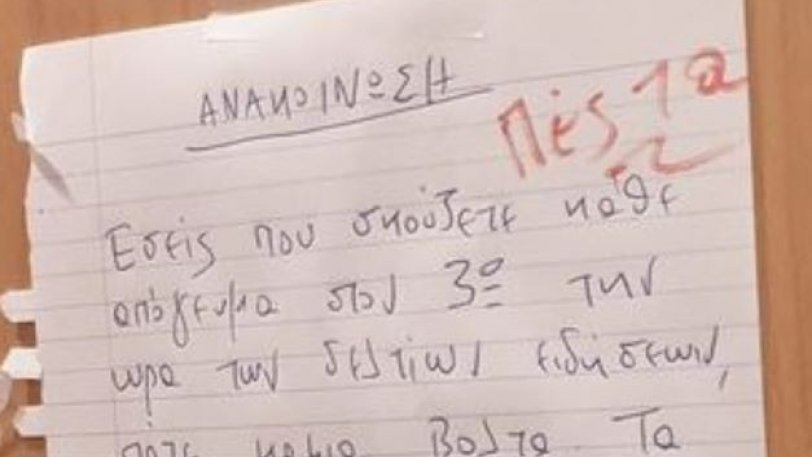 ΑΝΑΚΟΙΝΩΣΗ
Πές τα
Εσείς που σκούζετε κάθε
απόγευμα στον 3º την
ώρα των δελτίων ειδήσεων,
καμια βολτα. Τα